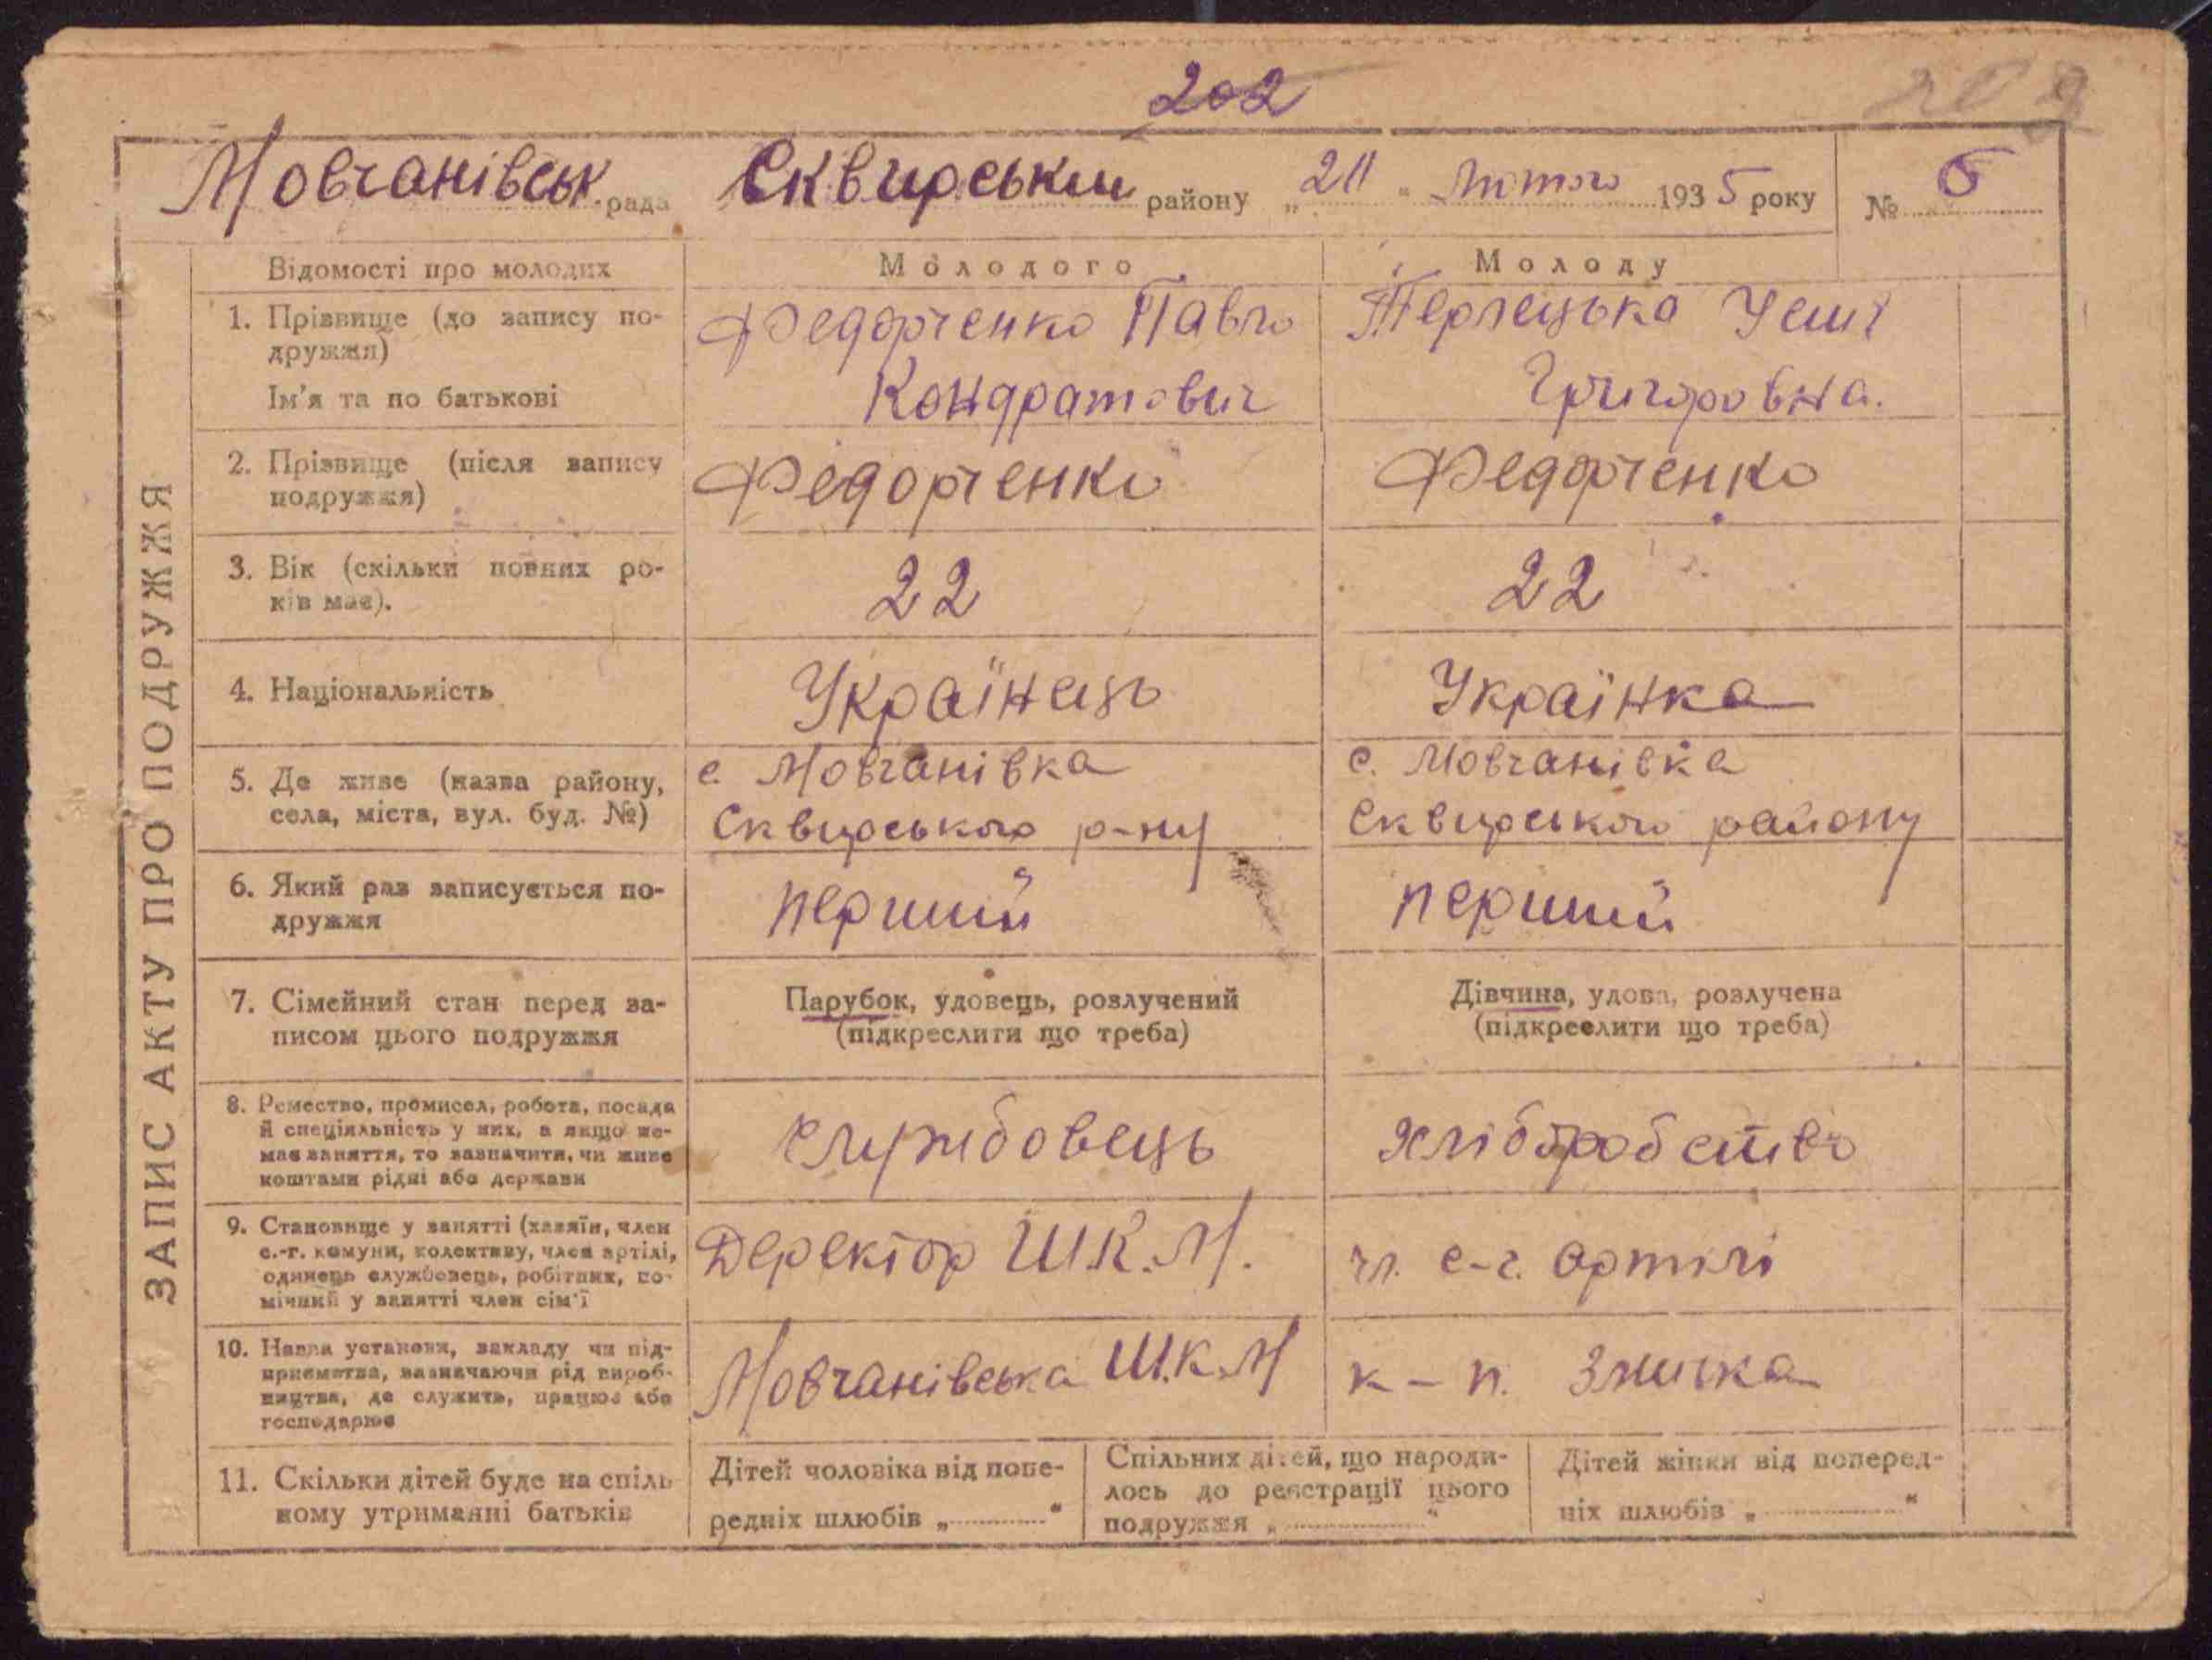 202
202
Мовчанівськ. рада Сквирський району „ 2II “ Лютого 1935 року № 6
ЗАПИС АКТУ ПРО ПОДРУЖЖЯ
Відомості про молодих
Молодого
Молоду
1. Прізвище (до запису по-
дружжя)
Ім'я та по батькові
Федорченко Павло
Кондратович
Терлецька
Григоровна.
2. Прізвище (після запису
подружжя)
Федорченко
Федорченко
3. Вік (скільки повних ро-
ків має).
22
22
4. Національність
Українець
Українка
5. Де живе (назва району,
села, міста, вул. буд. №)
с. Мовчанівка
Сквирського р-ну
с. Мовчанівка
Сквирського району
6. Який раз записується по-
дружжя
перший
перший
7. Сімейний стан перед за-
писом цього подружжя
Парубок, удовець, розлучений
(підкреслити що треба)
Дівчина, удова, розлучена
(підкреслити що треба)
8. Ремество, промисел, робота, посада
й спеціяльність у них, а якщо не-
має заняття, то зазначити, чи живе
коштами рідні або держави
службовець
хліборобство
9. Становище у занятті (хазяїн, член
с.-г. комуни, колективу, член артілі,
одинець службовець, робітник, по-
мічний у занятті член сім'ї
Деректор Ш.К.М.
чл. с-г. артілі
10. Назва установи, закладу чи під-
приємства, зазначаючи рід вироб-
ництва, де служить, працює або
господарює
Мовчанівська Ш.К.М
к-п. Змичка
11. Скільки дітей буде на спіль
ному утриманні батьків
Дітей чоловіка від попе-
редніх шлюбів „ “
Спільних дітей, що народи-
лось до реєстрації цього
подружжя „ “
Дітей жінки від поперед-
ніх шлюбів „ “